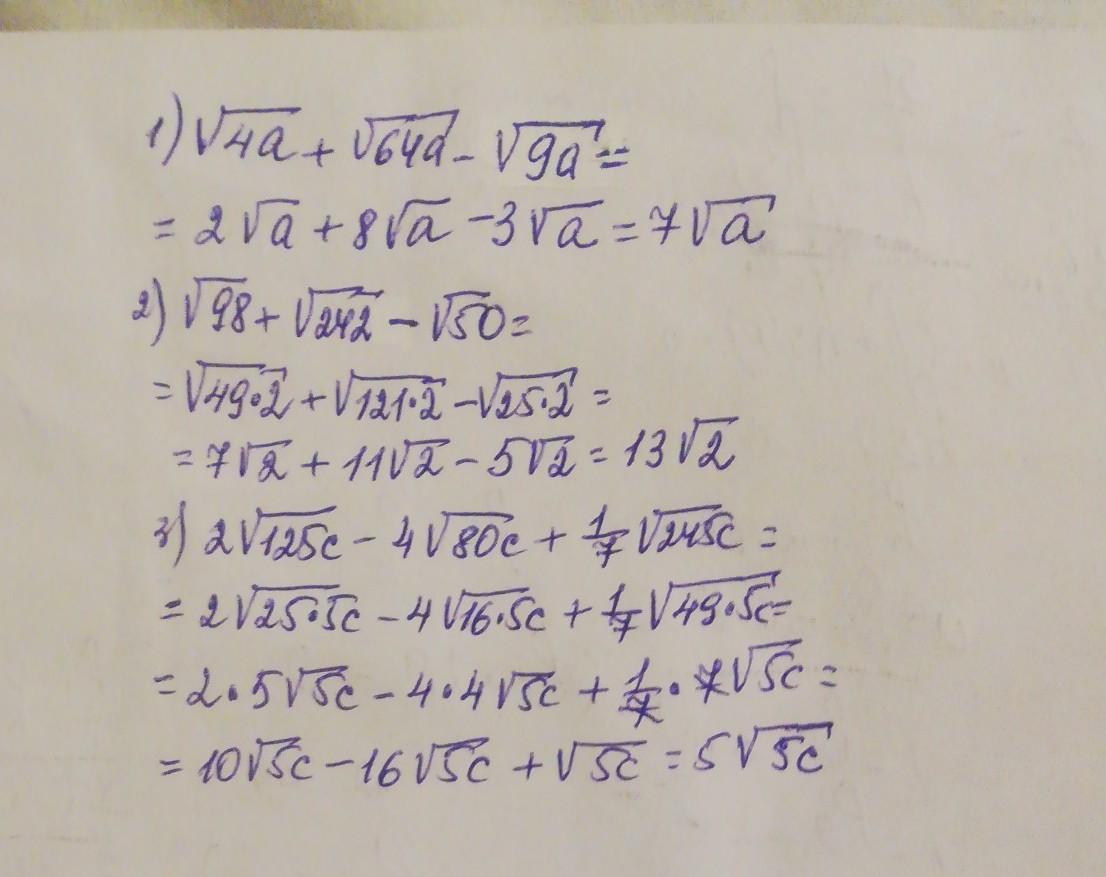 1) √4a + √64a - √9a =
= 2√a + 8√a - 3√a = 7√a
2) √98 + √242 - √50 =
= √49·2 + √121·2 - √25·2 =
= 7√2 + 11√2 - 5√2 = 13√2
3) 2√125c - 4√80c + 1/7 √245c =
= 2√25·5c - 4√16·5c + 1/7 √49·5c =
= 2·5√5c - 4·4√5c + 1/7 · 7√5c =
= 10√5c - 16√5c + √5c = 5√5c